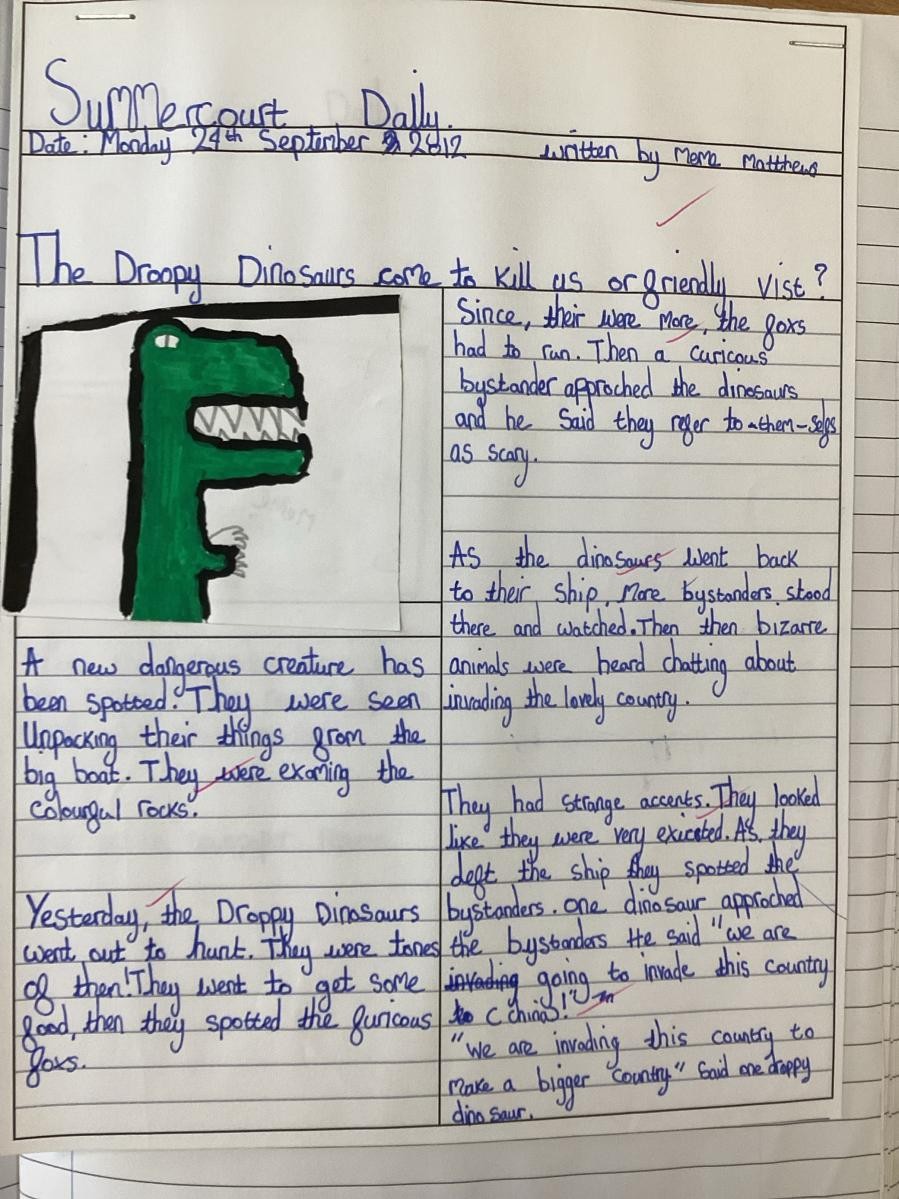 Summercourt Daily.
Date: Monday 24th September 2012
written by Meme Matthews
The Droopy Dinosaurs come to kill us or friendly vist?
A new dangerous creature has
been spotted. They were seen
Unpacking their things from the
big boat. They were examing the
colourful rocks.
Yesterday, the Droppy Dinosaurs
went out to hunt. They were tones
of then! They went to get some
food, then they spotted the furicous
foxs.
Since, their were more, the foxs
had to run. Then a curicous
bystander approched the dinosaurs
and he said they refer to them-selfs
as scary.
As the dinosaurs went back
to their ship. More bystanders stood
there and watched. Then then bizarre
animals were heard chatting about
invading the lovely country.
They had strange accents. They looked
like they were very exicated. As, they
deft the ship they spotted the
bystanders. One dinosaur approched
the bystanders He said "we are
invading going to invade this country
to C China!"
"We are invading this country to
make a bigger country" said one droppy
dinosaur.